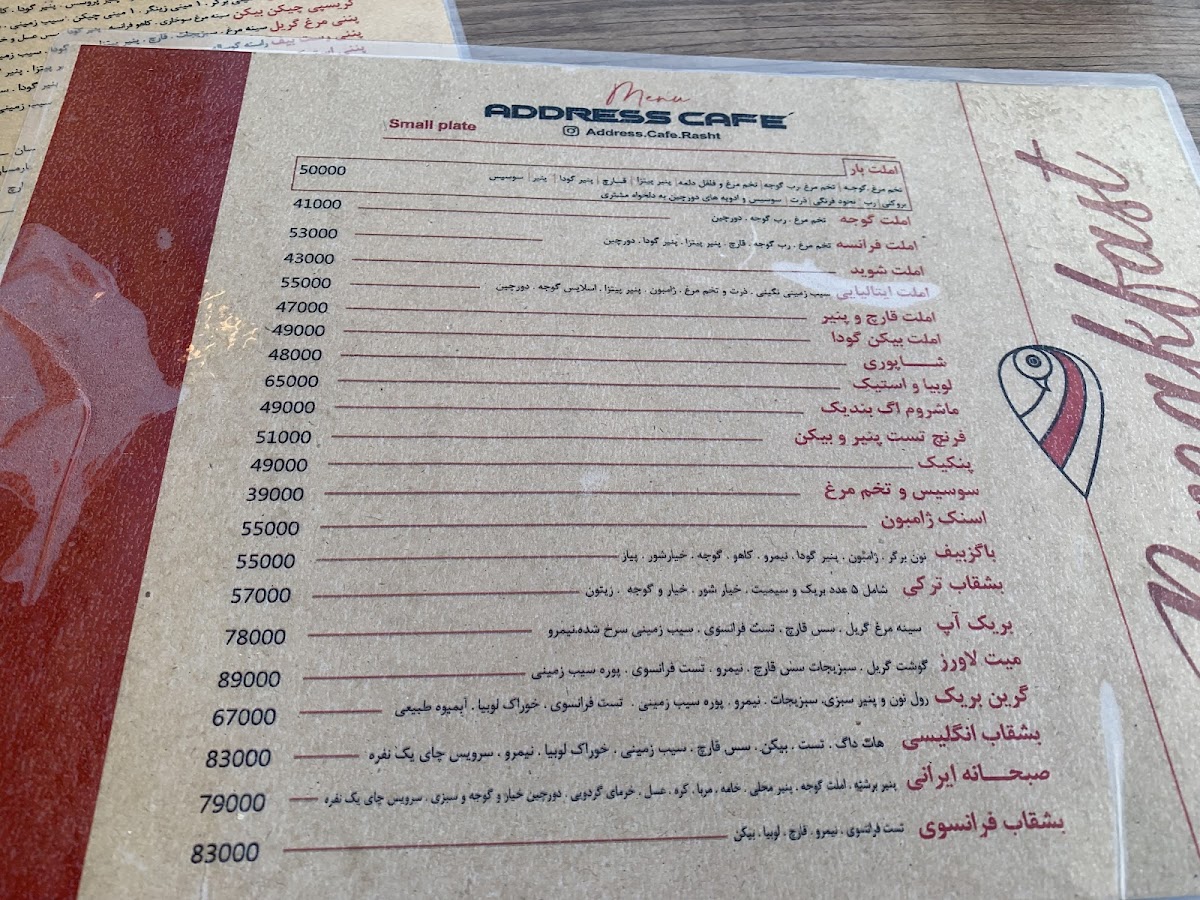 کریسپی چیکن بیکن
پنینی مرغ گریل
Menu
ADDRESS CAFE
Small plate
Address.Cafe.Rasht
Breakfast
املت بار 50000
تخم مرغ، گوجه | تخم مرغ رب گوجه | تخم مرغ و فلفل دلمه | پنیر پیتزا | قارچ | پنیر گودا | پنیر | سوسیس
بروکلی | رب | نخود فرنگی | ذرت | سوسیس و ادویه های دورچین به دلخواه مشتری
املت گوجه تخم مرغ . رب گوجه . دورچین 41000
املت فرانسه تخم مرغ . رب گوجه . قارچ . پنیر پیتزا . پنیر گودا . دورچین 53000
املت شوید 43000
املت ایتالیایی سیب زمینی نگینی . ذرت و تخم مرغ . ژامبون . پنیر پیتزا . اسلایس گوجه . دورچین 55000
املت قارچ و پنیر 47000
املت بیکن گودا 49000
شاپوری 48000
لوبیا و استیک 65000
ماشروم اگ بندیک 49000
فرنچ تست پنیر و بیکن 51000
پنکیک 49000
سوسیس و تخم مرغ 39000
اسنک ژامبون 55000
باگزبیف نون برگر . ژامبون . پنیر گودا . نیمرو . کاهو . گوجه . خیارشور . پیاز 55000
بشقاب ترکی شامل ۵ عدد بریک و سیمیت . خیار شور . خیار و گوجه . زیتون 57000
بریک آپ سینه مرغ گریل . سس قارچ . تست فرانسوی . سیب زمینی سرخ شده.نیمرو 78000
میت لاورز گوشت گریل . سبزیجات سس قارچ . نیمرو . تست فرانسوی . پوره سیب زمینی 89000
گرین بریک رول نون و پنیر سبزی، سبزیجات . نیمرو . پوره سیب زمینی . تست فرانسوی . خوراک لوبیا . آبمیوه طبیعی 67000
بشقاب انگلیسی هات داگ . تست . بیکن . سس قارچ . سیب زمینی . خوراک لوبیا . نیمرو . سرویس چای یک نفره 83000
صبحانه ایرانی پنیر برشته . املت گوجه . پنیر محلی . خامه . مربا . کره . عسل . خرمای گردویی . دورچین خیار و گوجه و سبزی . سرویس چای یک نفره 79000
بشقاب فرانسوی تست فرانسوی . نیمرو . قارچ . لوبیا . بیکن 83000